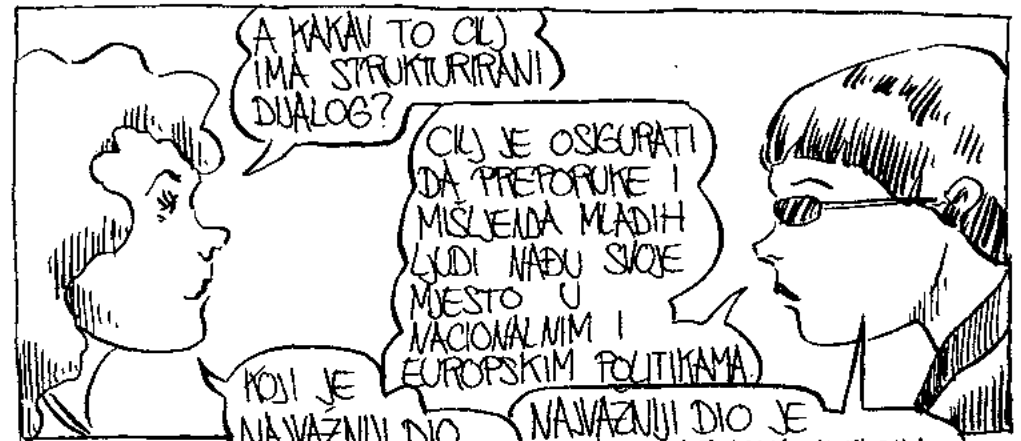 A KAKAV TO CILJ
IMA STRUKTURIRANI
DIJALOG?
CILJ JE OSIGURATI
DA PREPORUKE I
MIŠLJENJA MLADIH
LJUDI NAĐU SVOJE
MJESTO U
NACIONALNIM I
EUROPSKIM POLITIKAMA.
KOJI JE
NAJVAŽNIJI DIO
NAJVAŽNIJI DIO JE